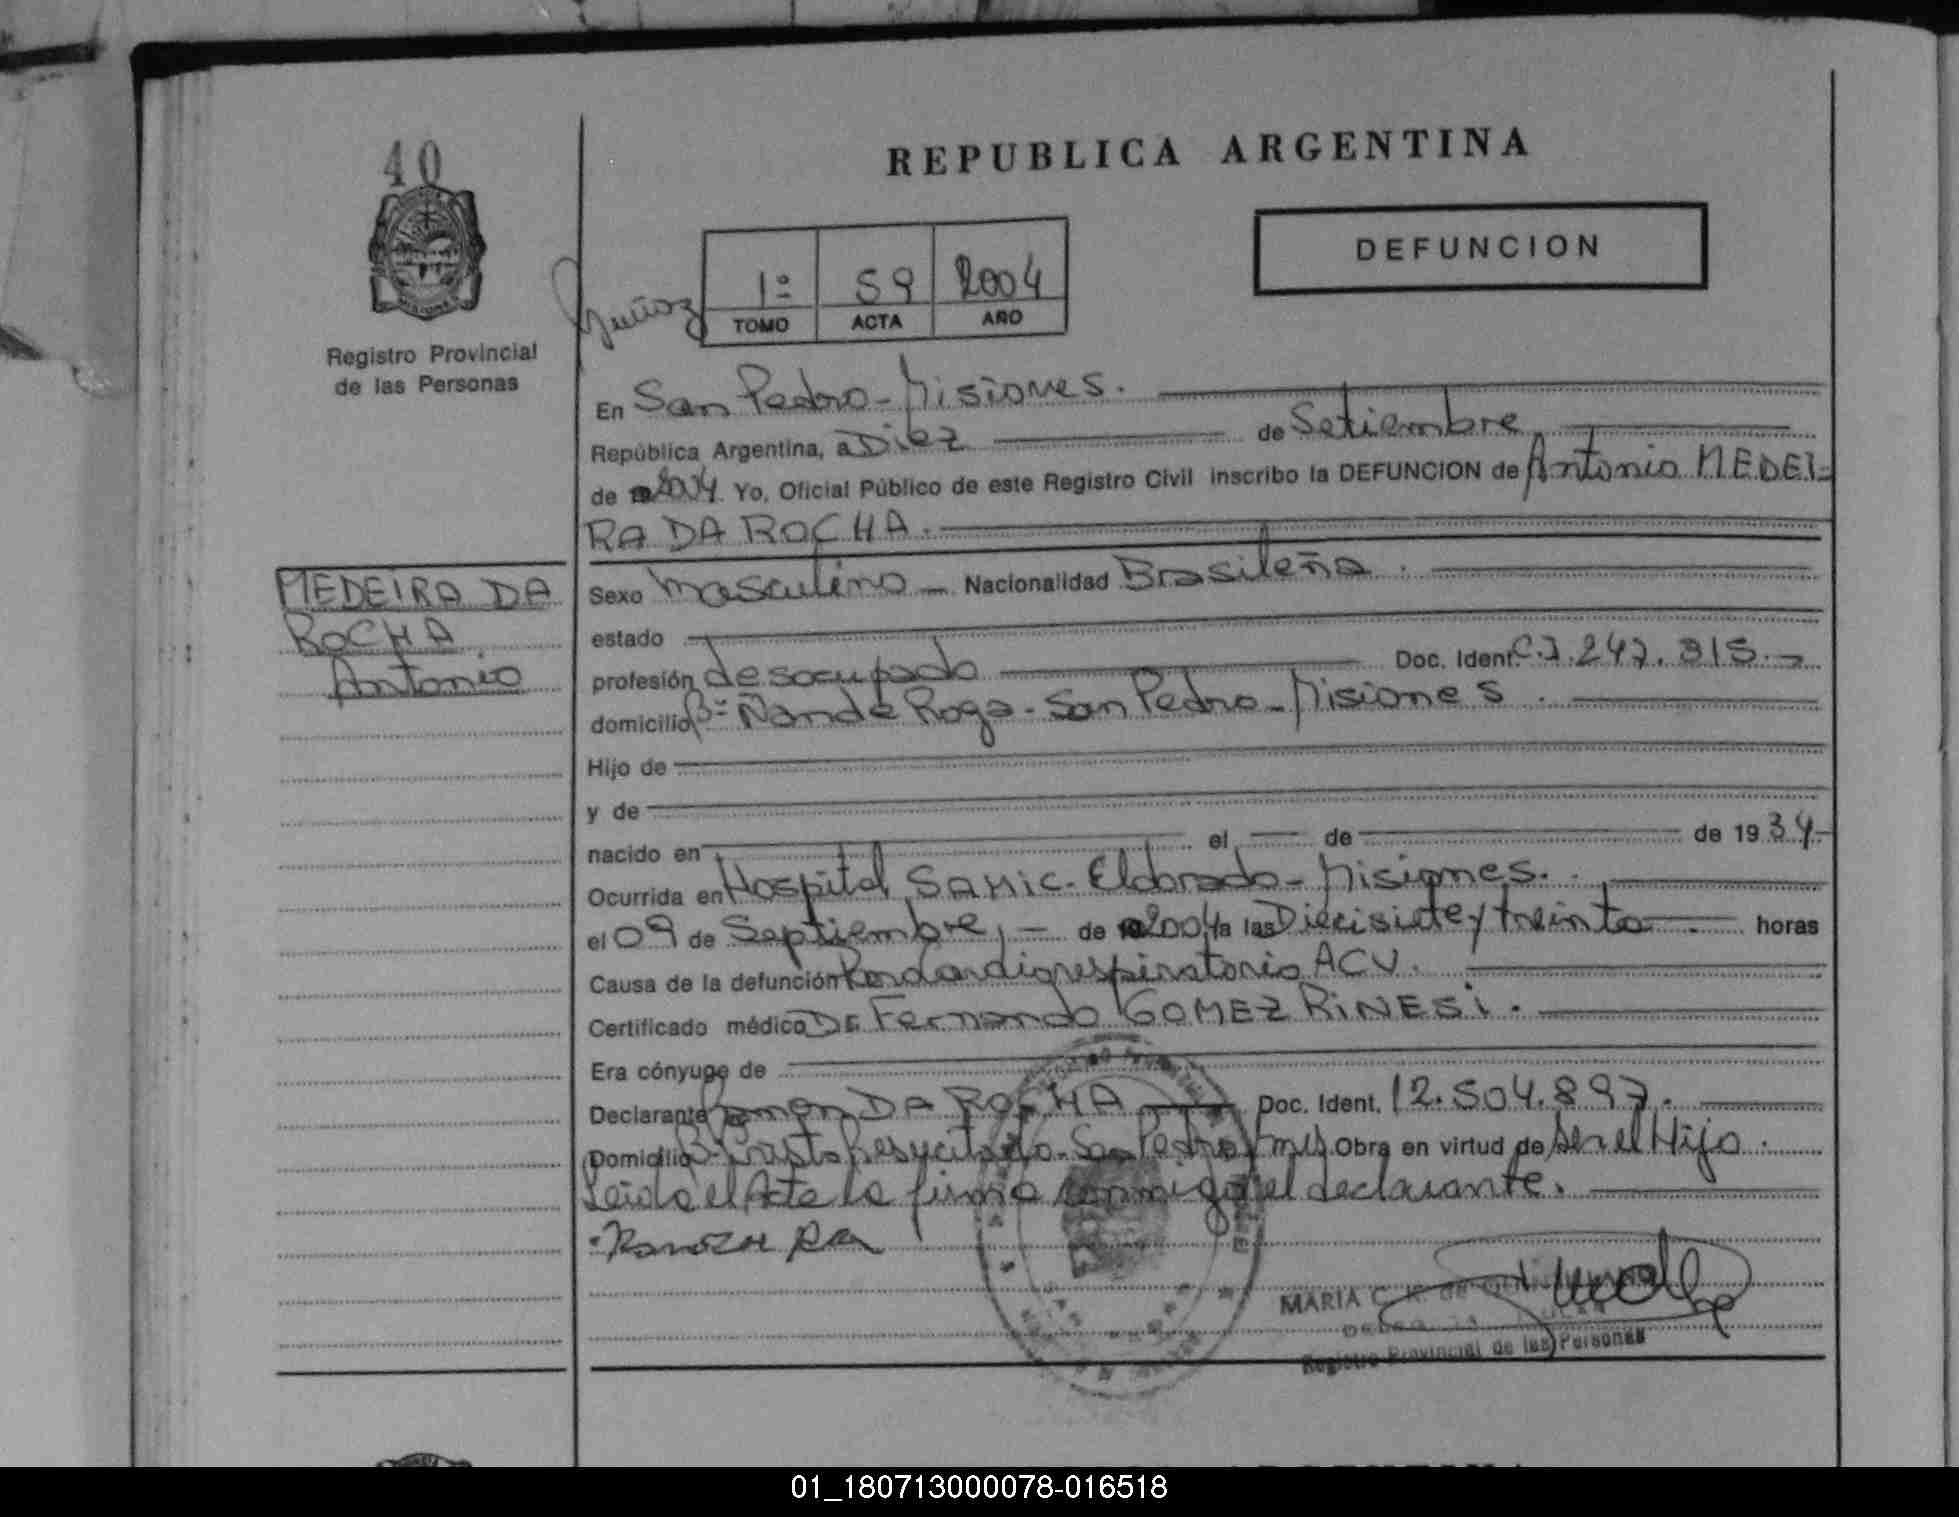 40
REPUBLICA ARGENTINA
DEFUNCION
1º 59 2004
TOMO ACTA AÑO
Muñoz
Registro Provincial
de las Personas
En San Pedro - Misiones.
República Argentina, a Diez de Setiembre
de 2004. Yo, Oficial Público de este Registro Civil inscribo la DEFUNCION de Antonio MEDEI-
RA DA ROCHA.
MEDEIRA DA
ROCHA
Antonio
Sexo Masculino - Nacionalidad Brasileña.
estado
profesión desocupado Doc. Ident. C.I. 247.315.-
domicilio Bº Ñande Roga - San Pedro - Misiones.
Hijo de
y de
nacido en el de de 1934-
Ocurrida en Hospital SAMIC - Eldorado - Misiones.
el 09 de Septiembre, - de 2004 a las Diecisiete y treinta horas
Causa de la defunción Parocardiorespiratorio ACV.
Certificado médico Dr. Fernando GOMEZ RINESI.
Era cónyuge de
Declarante Ramon DA ROCHA Doc. Ident. 12.504.897.
Domicilio Bº Cristo Resucitado - San Pedro, Mnes. Obra en virtud de ser el Hijo.
Leida el Acta la firma conmigo el declarante.
MARIA C. K. de
Registro Provincial de las Personas
01_180713000078-016518